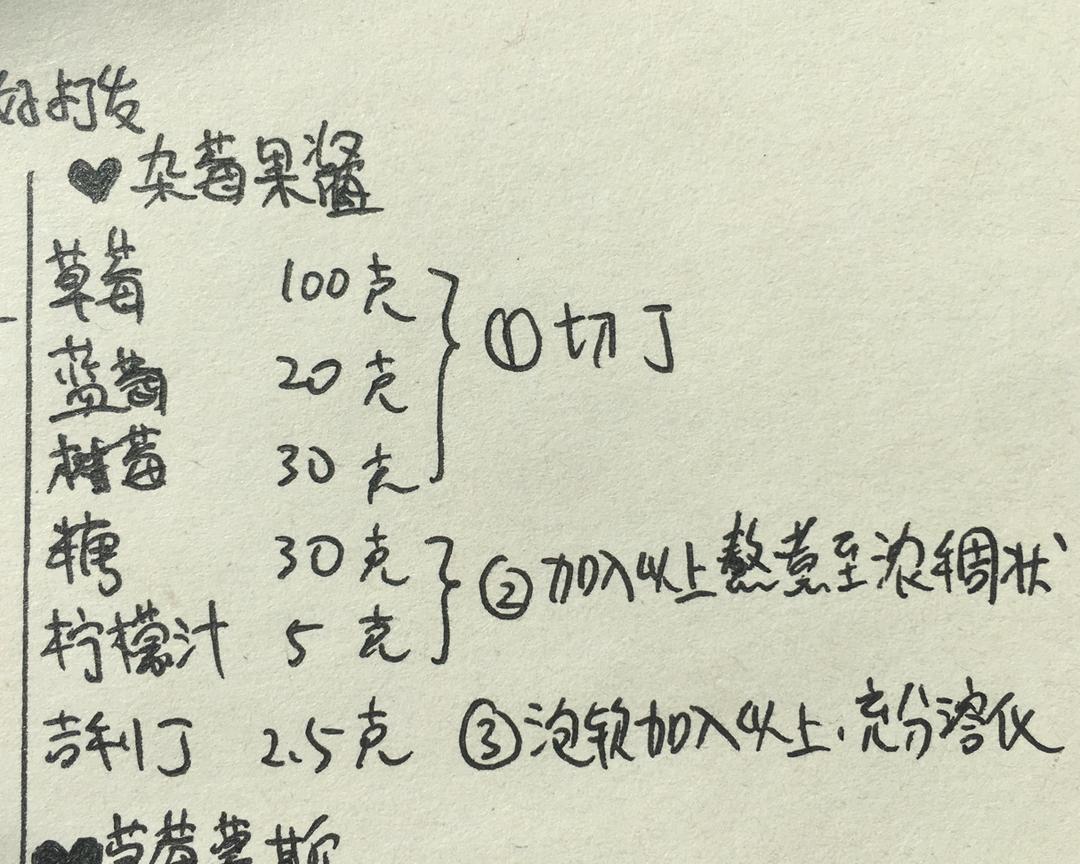 好打发
♥杂莓果酱
草莓 100克
蓝莓 20克 ①切丁
树莓 30克
糖 30克 ②加入以上熬煮至浓稠状
柠檬汁 5克
吉利丁 2.5克 ③泡软加入以上.充分溶化
♥草莓慕斯